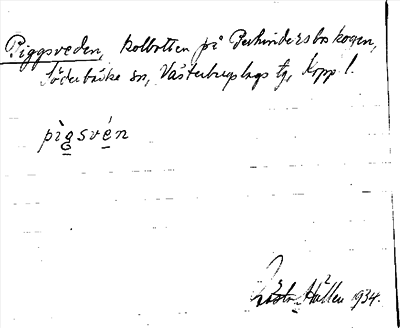 Piggsveden, kolbotten på Perhindersboskogen,
Söderbärke sn, Västerbergslags tg, Kopp. l.
pìg̱své̱n
Hällen 1934.